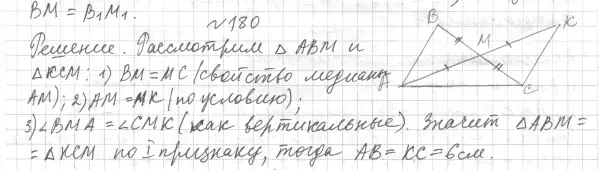 BM = B₁M₁.
№180
Решение. Рассмотрим △ ABM и
△KCM: 1) BM = MC (свойство медианы
AM); 2) AM = MK (по условию);
3) ∠BMA = ∠CMK (как вертикальные). Значит △ABM =
= △KCM по I признаку, тогда AB = KC = 6см.
B
K
M
A
C